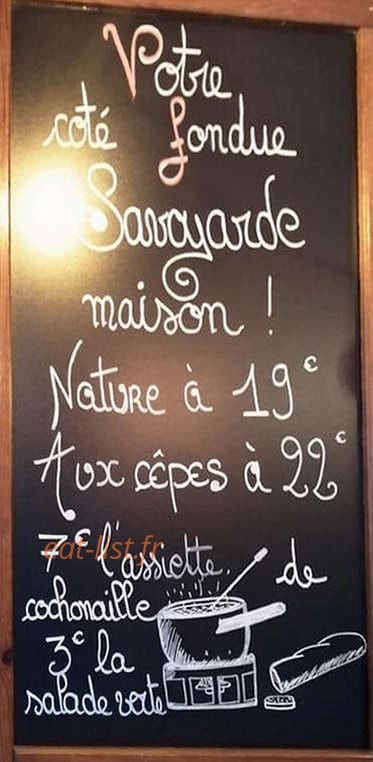 Votre
coté fondue
Savoyarde
maison !
Nature à 19€
Aux cêpes à 22€
7€ l'assiette de
eat-list.fr
cochonaille
3€ la
salade verte